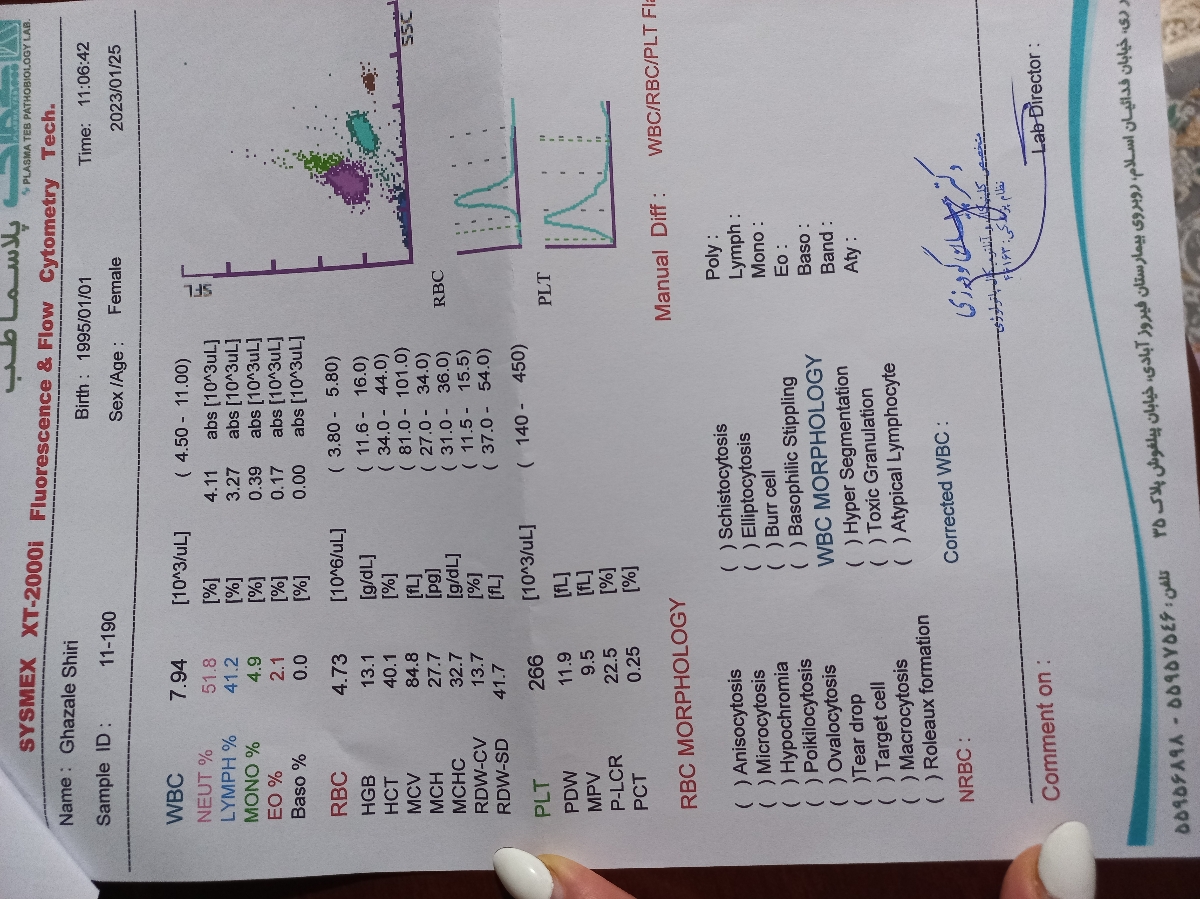 پلاسما طب
PLASMA TEB PATHOBIOLOGY LAB.
SYSMEX XT-2000i Fluorescence & Flow Cytometry Tech.
Name : Ghazale Shiri Birth : 1995/01/01 Time: 11:06:42
Sample ID : 11-190 Sex /Age : Female 2023/01/25
WBC 7.94 [10^3/uL] ( 4.50 - 11.00)
NEUT % 51.8 [%] 4.11 abs [10^3uL]
LYMPH % 41.2 [%] 3.27 abs [10^3uL]
MONO % 4.9 [%] 0.39 abs [10^3uL]
EO % 2.1 [%] 0.17 abs [10^3uL]
Baso % 0.0 [%] 0.00 abs [10^3uL]
SSC
RBC 4.73 [10^6/uL] ( 3.80 - 5.80)
HGB 13.1 [g/dL] ( 11.6 - 16.0)
HCT 40.1 [%] ( 34.0 - 44.0)
MCV 84.8 [fL] ( 81.0 - 101.0)
MCH 27.7 [pg] ( 27.0 - 34.0)
MCHC 32.7 [g/dL] ( 31.0 - 36.0)
RDW-CV 13.7 [%] ( 11.5 - 15.5)
RDW-SD 41.7 [fL] ( 37.0 - 54.0)
RBC
PLT 266 [10^3/uL] ( 140 - 450)
PDW 11.9 [fL]
MPV 9.5 [fL]
P-LCR 22.5 [%]
PCT 0.25 [%]
PLT
RBC MORPHOLOGY
( ) Anisocytosis
( ) Microcytosis
( ) Hypochromia
( ) Poikilocytosis
( ) Ovalocytosis
( )Tear drop
( ) Target cell
( ) Macrocytosis
( ) Roleaux formation
NRBC :
( ) Schistocytosis
( ) Elliptocytosis
( ) Burr cell
( ) Basophilic Stippling
WBC MORPHOLOGY
( ) Hyper Segmentation
( ) Toxic Granulation
( ) Atypical Lymphocyte
Corrected WBC :
Manual Diff : WBC/RBC/PLT
Poly :
Lymph :
Mono :
Eo :
Baso :
Band :
Aty :
Comment on :
Lab Director :
خیابان فدائیان اسلام، روبروی بیمارستان فیروز آبادی، خیابان پیلغوش پلاک ۳۵
تلفن : ۵۵۹۵۷۵۴۶ - ۵۵۹۵۶۸۹۸